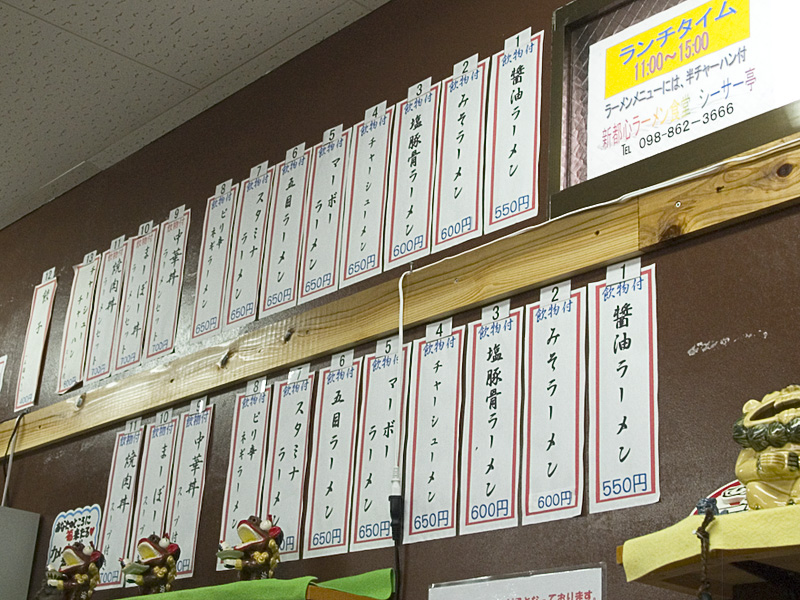 ランチタイム
11:00～15:00
ラーメンメニューには、半チャーハン付
新都心ラーメン食堂 シーサー亭
TEL 098-862-3666
1
飲物付
醤油ラーメン
550円
2
飲物付
みそラーメン
600円
3
飲物付
塩豚骨ラーメン
600円
4
飲物付
チャーシューメン
650円
5
飲物付
マーボー
ラーメン
650円
6
飲物付
五目ラーメン
650円
7
飲物付
スタミナ
ラーメン
650円
8
飲物付
ピリ辛
ネギラーメン
650円
9
飲物付
中華丼
700円
10
飲物付
まーぼ丼
700円
11
飲物付
焼肉丼
チャーハン
餃子
400円
1
飲物付
醤油ラーメン
550円
2
飲物付
みそラーメン
600円
3
飲物付
塩豚骨ラーメン
600円
4
飲物付
チャーシューメン
650円
5
飲物付
マーボー
ラーメン
650円
6
飲物付
五目ラーメン
650円
7
飲物付
スタミナ
ラーメン
8
飲物付
ピリ辛
ネギラーメン
9
飲物付
中華丼
スープ付
10
飲物付
まーぼー
11
飲物付
焼肉丼
スープ付